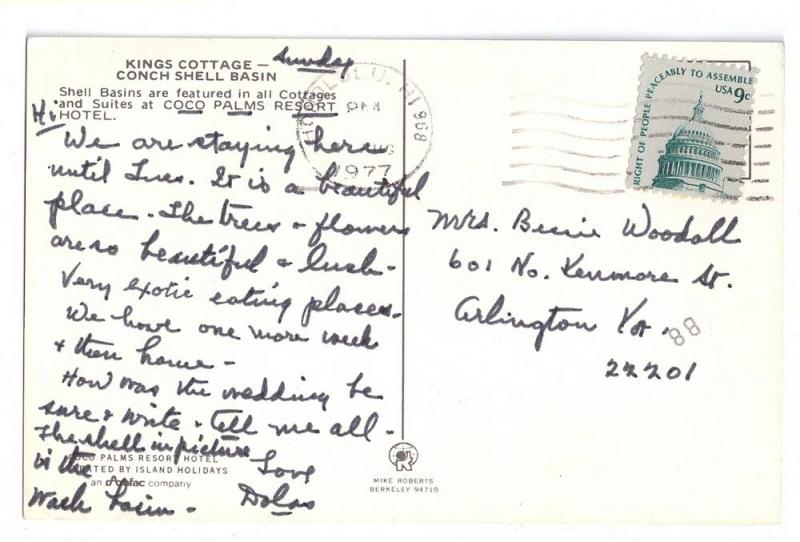 KINGS COTTAGE —
CONCH SHELL BASIN
Sunday
Shell Basins are featured in all Cottages
and Suites at COCO PALMS RESORT
HOTEL.
Hi
We are staying here
until Tues. It is a beautiful
place. The trees & flowers
are so beautiful & lush -
Very exotic eating places.
We have one more week
& then home -
How was the wedding be
sure & write & Tell me all -
The shell in picture
is the
Wash basin -
Love
COCO PALMS RESORT HOTEL
OPERATED BY ISLAND HOLIDAYS
an Amfac company
HONOLULU, HI 968
PM
1977
RIGHT OF PEOPLE PEACEABLY TO ASSEMBLE
USA 9c
Mrs. Bessie Woodall
601 No. Kenmore St.
Arlington Va.
22201
88
MIKE ROBERTS
BERKELEY 94710